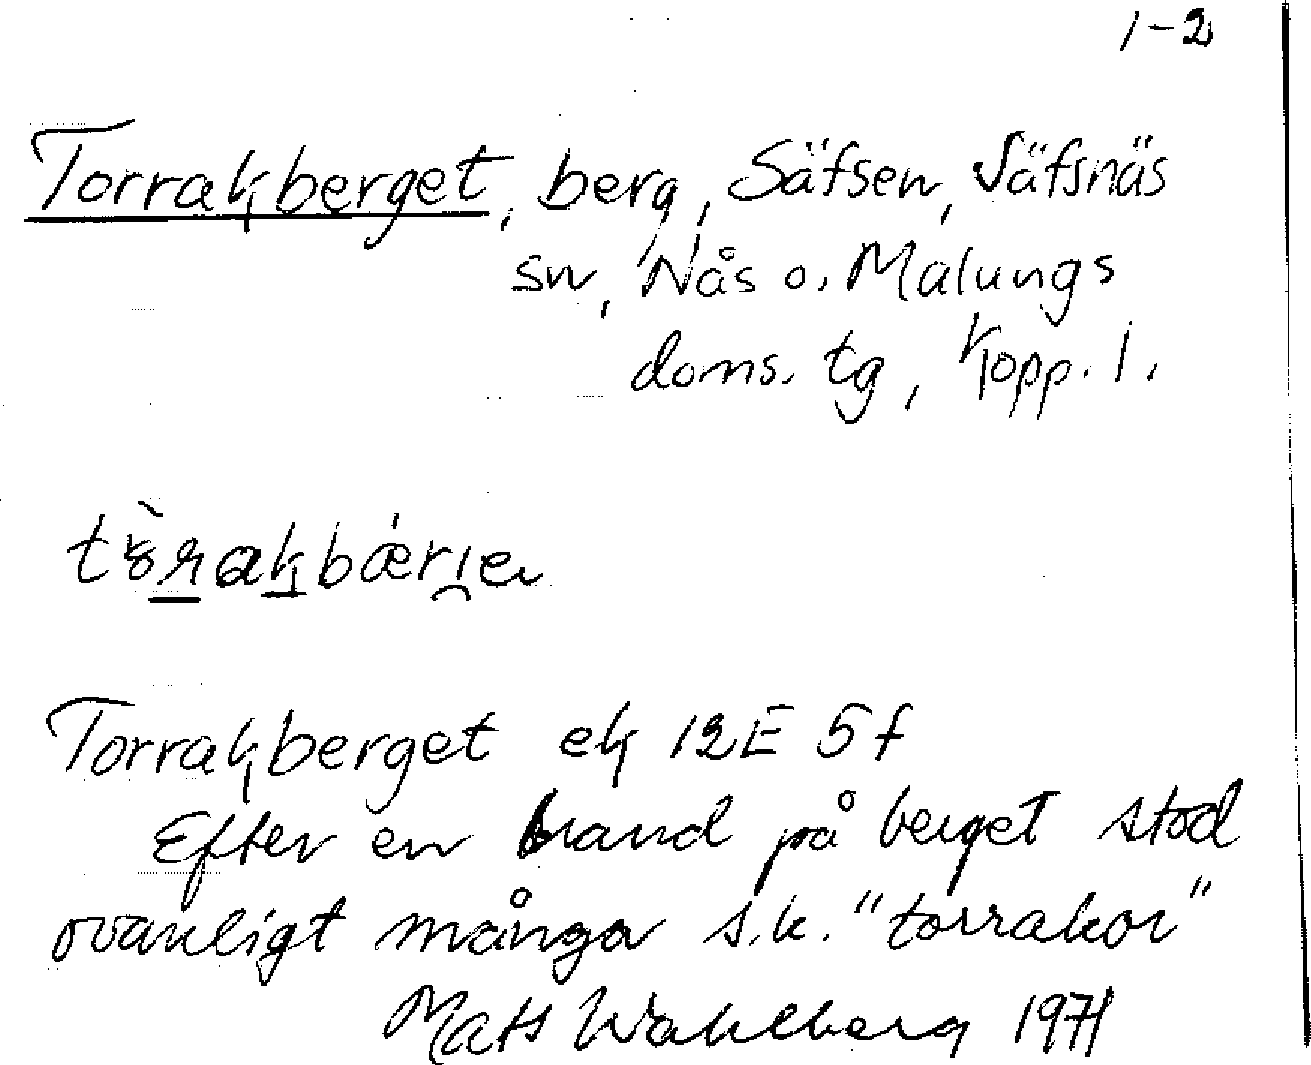 1-2
Torrakberget, berg, Säfsen, Säfsnäs
sn, Nås o. Malungs
doms. tg, Kopp. l.
Torrakberget ek 12E 5f
Efter en brand på berget stod
ovanligt många s.k. "torrakor"
Mats Wahlberg 1971